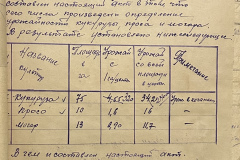 составлен настоящий акт в том что
сего числа произведен определение
урожайности кукурузы проса и могара
В результате установлено нижеследующее
Название культур Площадь га Урожай с гектара Урожай со всей площади в цент. Примечание
Кукуруза 75
Просо 10 1,6 16
Могар 13 11,7 —
В чем и составлен настоящий акт.